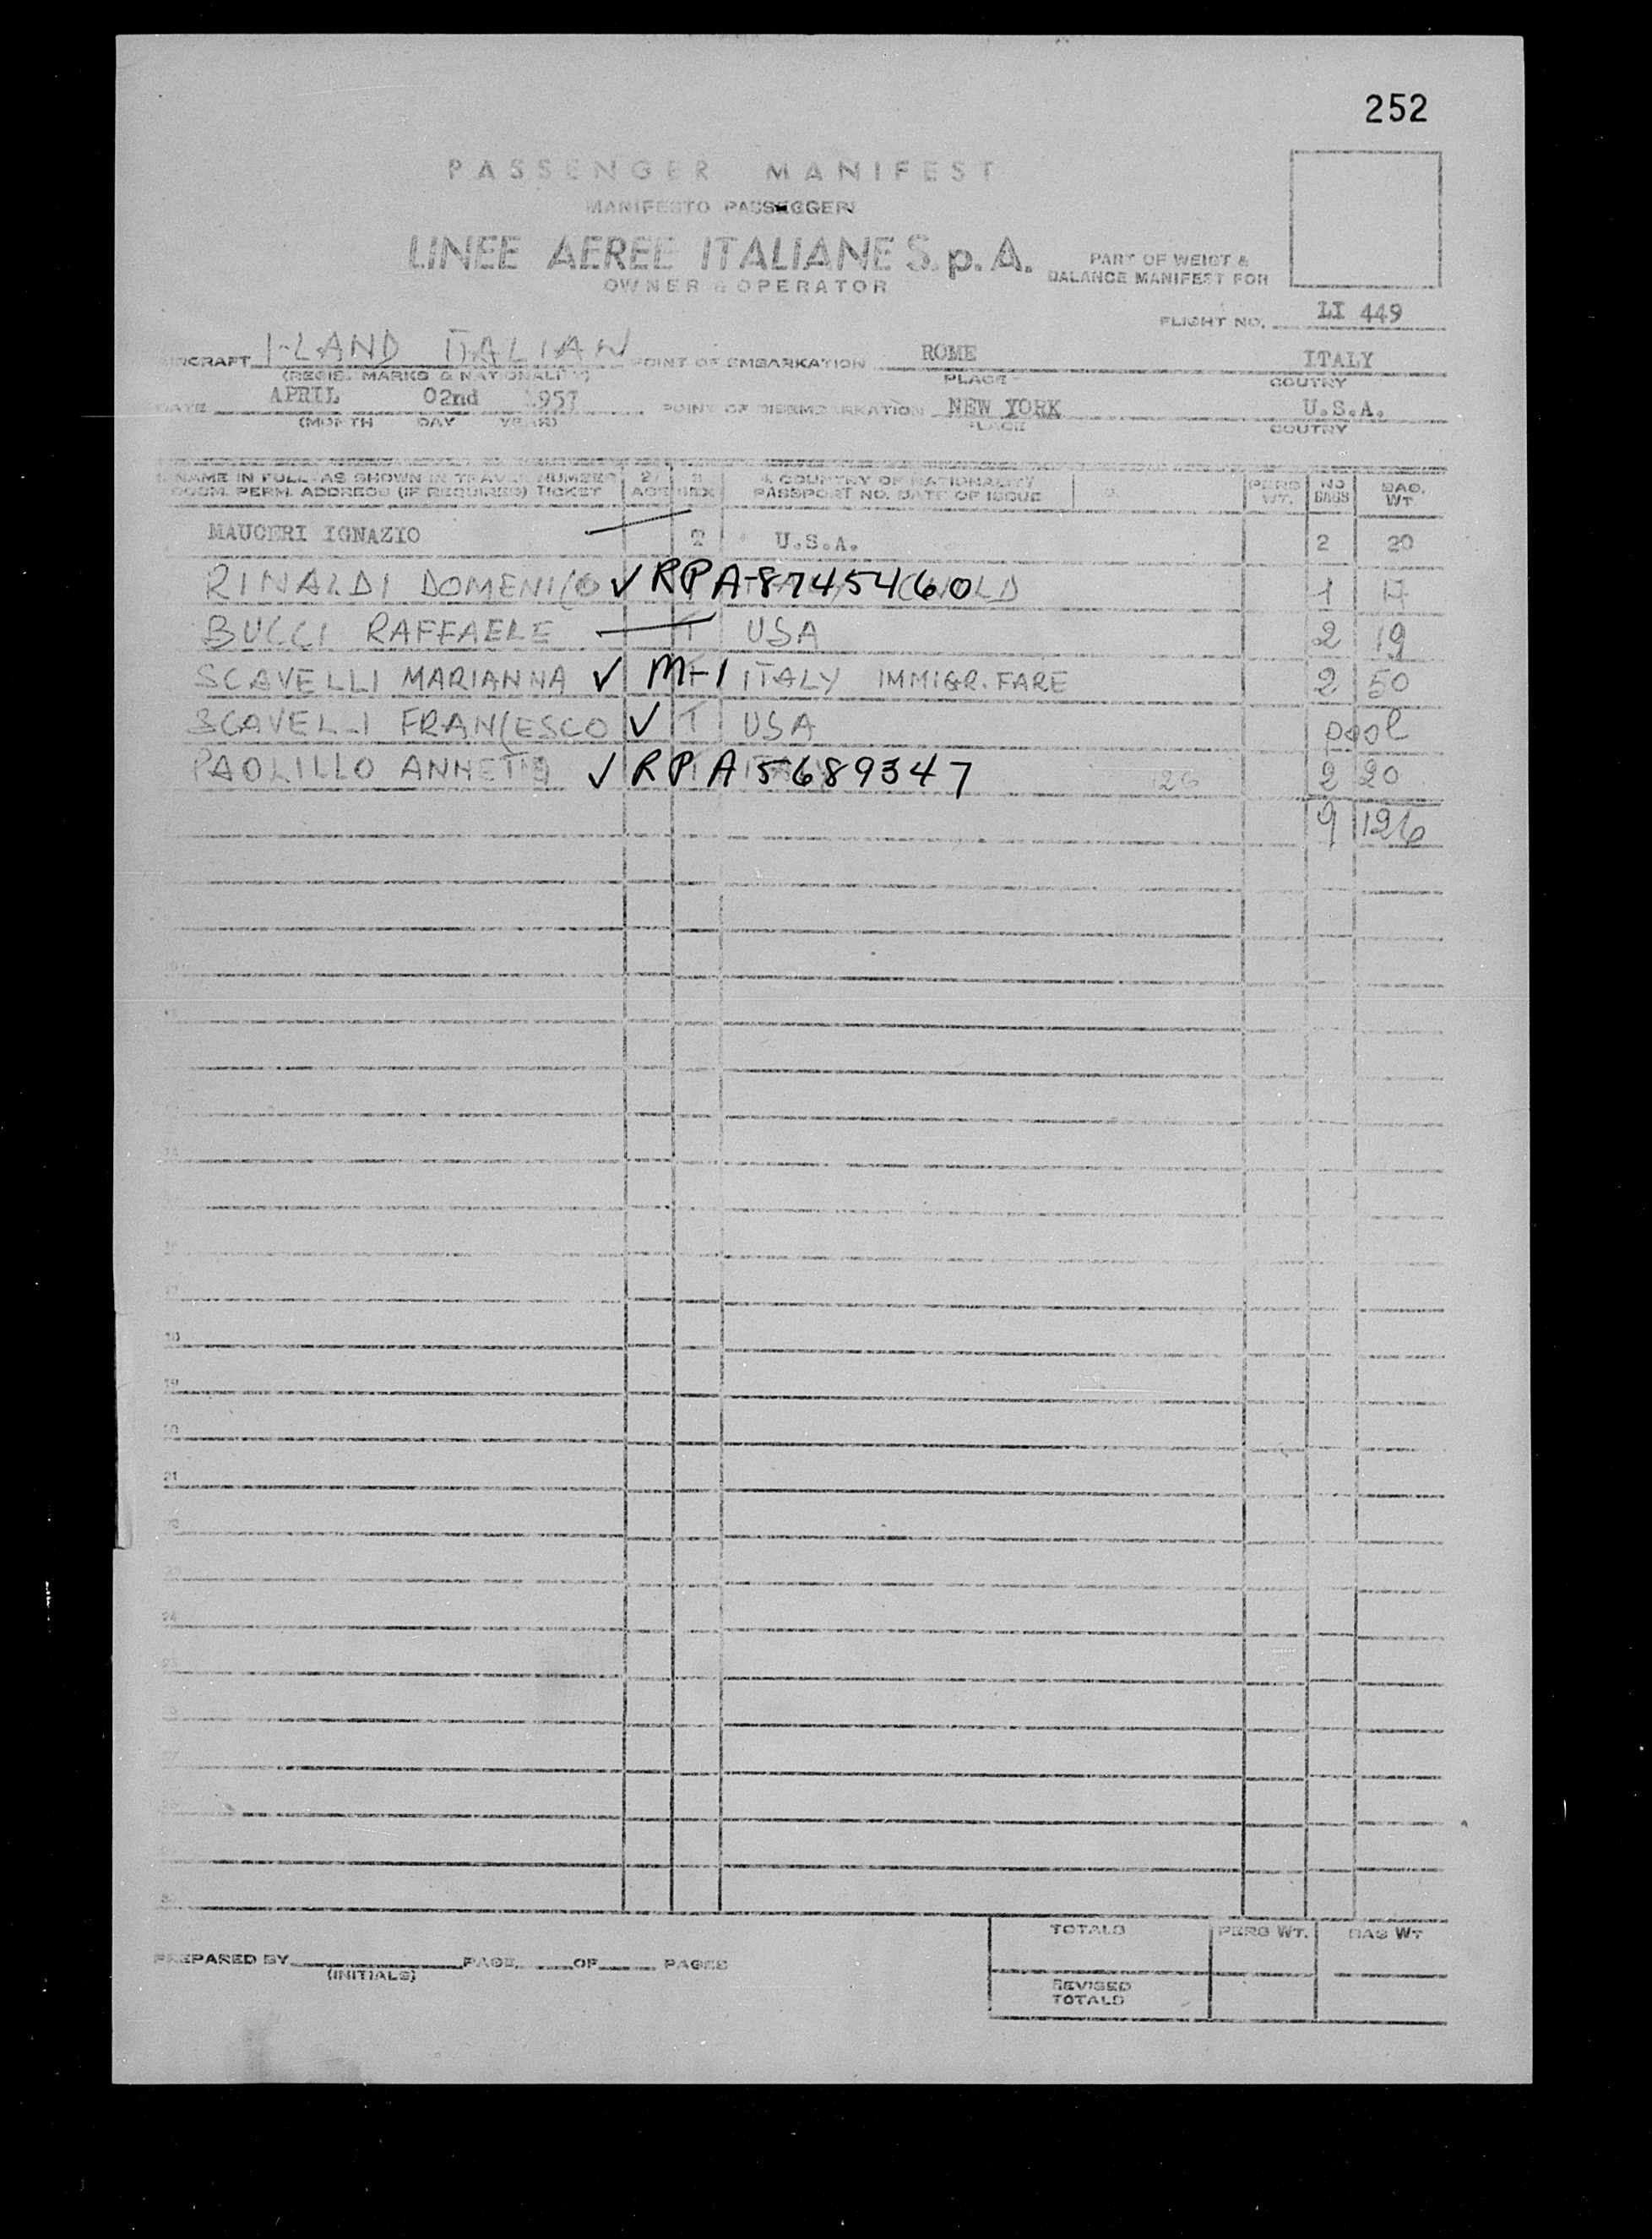 252
PASSENGER MANIFEST
MANIFESTO PASSEGGERI
LINEE AEREE ITALIANE S.p.A.
OWNER & OPERATOR
PART OF WEIGT &
BALANCE MANIFEST FOR
FLIGHT NO. LI 449
AIRCRAFT I-LAND ITALIAN POINT OF EMBARKATION ROME ITALY
(REGIS. MARKS & NATIONALITY) PLACE COUTRY
DATE APRIL 02nd 1957 POINT OF DISEMBARKATION NEW YORK U.S.A.
(MONTH DAY YEAR) PLACE COUTRY
NAME IN FULL AS SHOWN IN TRAVEL NUMBER 2 3 4 COUNTRY OF NATIONALITY PERS NO BAG.
DOCM. PERM. ADDRESS (IF REQUIRED) TICKET AGE SEX PASSPORT NO. DATE OF ISSUE WT. BAGS WT.
MAUCERI IGNAZIO U.S.A. 2 20
RINALDI DOMENICO ✓ RP A-8745460 1 17
BUCCI RAFFAELE T USA 2 19
SCAVELLI MARIANNA ✓ M-1 ITALY IMMIGR. FARE 2 50
SCAVELLI FRANCESCO ✓ T USA pool
PAOLILLO ANNETTA ✓ RP A 5689347 126 2 20
9 126
18
19
20
21
22
24
TOTALS PERS WT. BAG WT
PREPARED BY PAGE OF PAGES
(INITIALS)
REVISED
TOTALS